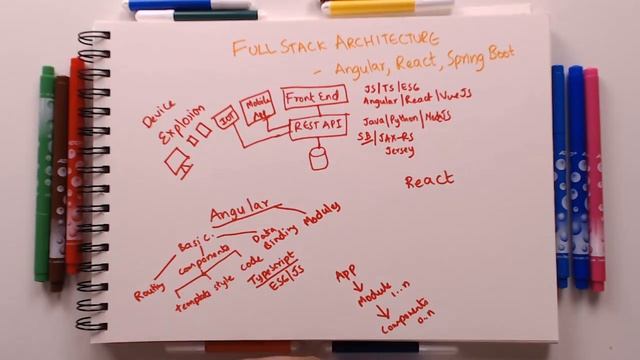 FULL STACK ARCHITECTURE
- Angular, React, Spring Boot
Device
Explosion
IOT
Mobile
App
Front End
REST API
JS|TS|ES6
Angular|React|VueJS
Java|Python|NodeJS
SB|JAX-RS
Jersey
React
Angular
Basic.
Data
Binding
Modules
Routing
Components
template
style
code
Typescript
ES6/JS
App
Module 1...n
Components
0..n